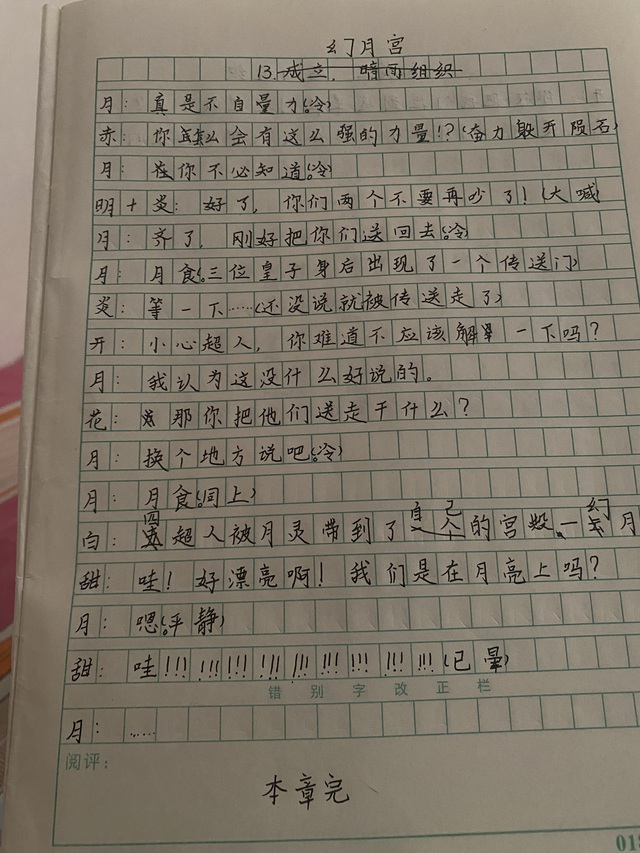 幻月宫
13.成立，暗面组织
月：真是不自量力(冷)
赤：你怎么会有这么强的力量!?(奋力敲开陨石)
月：你不必知道(冷)
明+炎：好了，你们两个不要再吵了！(大喊)
月：齐了，刚好把你们送回去(冷)
月：月食(三位皇子身后出现了一个传送门)
炎：等一下……(还没说就被传送走了)
开：小心超人，你难道不应该解释一下吗？
月：我认为这没什么好说的。
花：那你把他们送走干什么？
月：换个地方说吧(冷)
月：月食(同上)
白：四超人被月灵带到了自己的宫殿—幻月
甜：哇！好漂亮啊！我们是在月亮上吗？
月：嗯(平静)
甜：哇!!! !!! !!! !!! !!! !!! !!! !!! !!! !!!(已晕)
错别字改正栏
月：……
阅评：
本章完